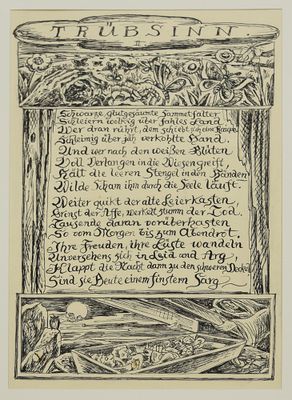 TRÜBSINN.
II
Schwarze, glutgesäumte Sammetfalter
Schleiern wolkig über fahles Land.
Wer dran rührt, dem schiebt sich eine Raupe
Schleimig über jäh verkohlte Hand.
Und wer nach den weißen Blüten
Voll Verlangen in die Wiesen greift
Hält die leeren Stengel in den Händen
Wilde Scham ihm durch die Seele läuft.
Weiter quikt der alte Leierkasten,
Grinst der Affe, werkelt stumm der Tod.
Tausende daran vorüberhasten
So vom Morgen bis zum Abendrot.
Ihre Freuden, ihre Lüste wandeln
Unversehens sich in Leid und Arg,
Klappt die Nacht dann zu den schweren Deckel
Sind sie Beute einem finstern Sarg.